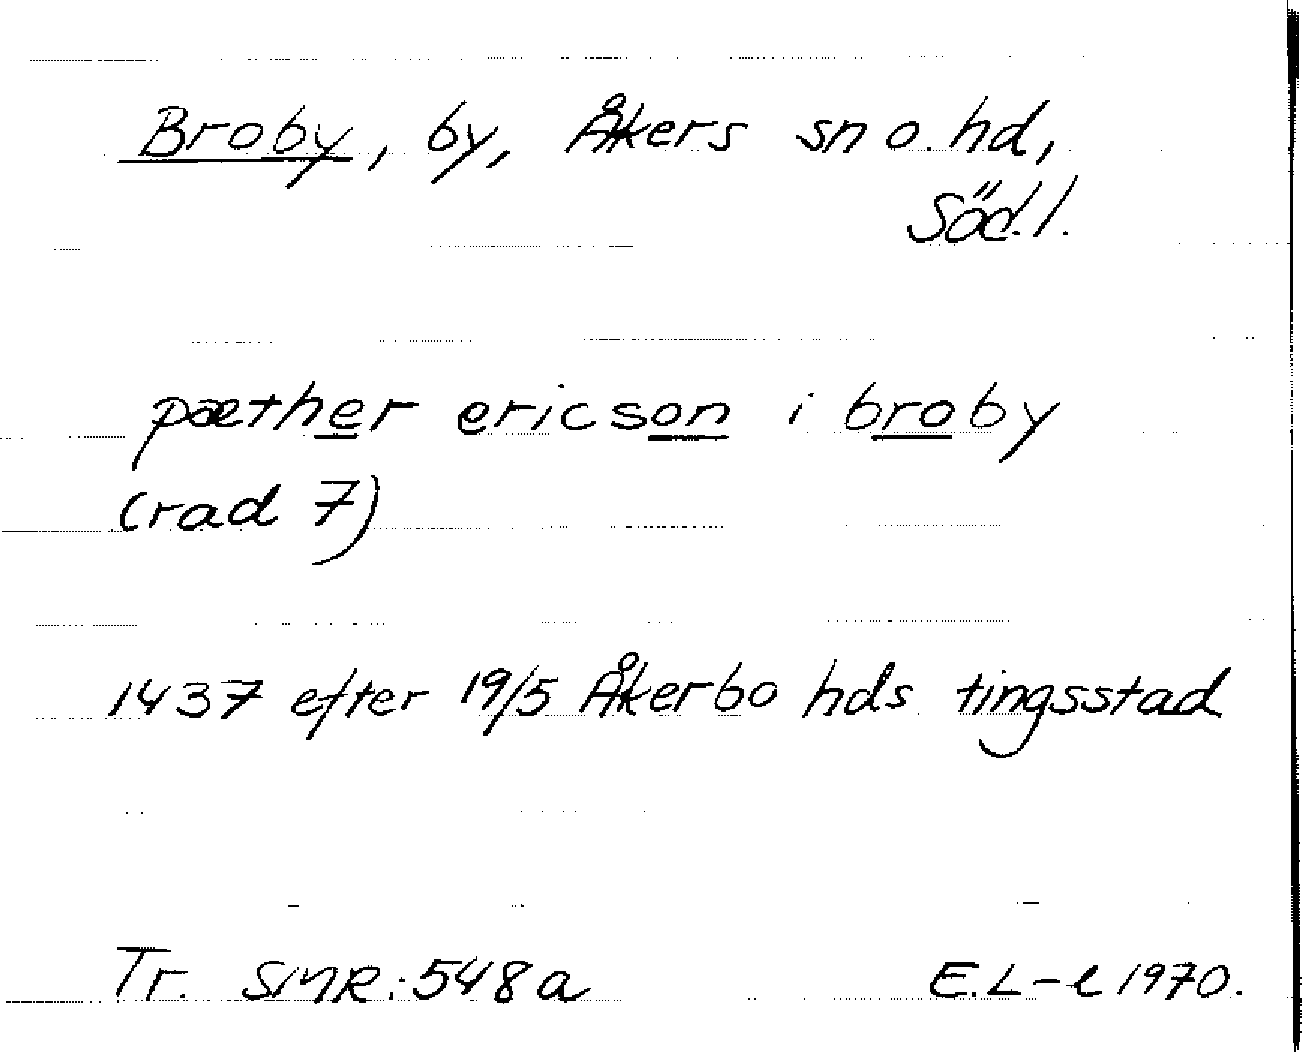 Broby, by, Åkers sn o. hd,
Söd.l.
pæther ericson i broby
(rad 7)
1437 efter 19/5 Åkerbo hds tingsstad
Tr. SMR.:548a E.L-l 1970.